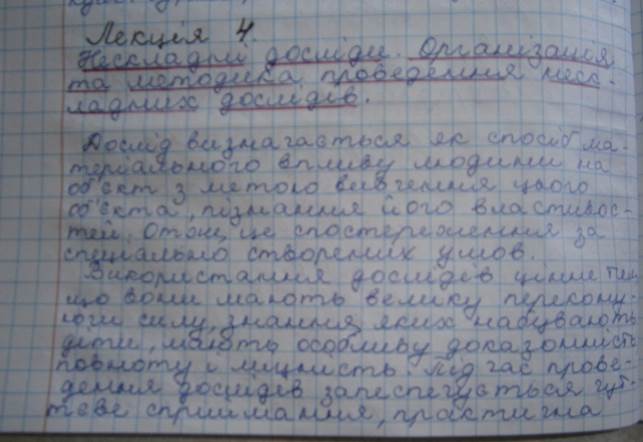 Лекція 4.
Нескладні досліди. Організація
та методика проведення неск-
ладних дослідів.
Дослід визначається як спосіб ма-
теріального впливу людини на
об'єкт з метою вивчення цього
об'єкта, пізнання його властивос-
тей. Отож, це спостереження за
спеціально створених умов.
Використання дослідів цінне тим
що вони мають велику переконую
чи силу, знання, яких набувають
діти, мають особливу доказовість
повноту і міцність. Під час прове-
дення дослідів запеспечується чут-
тєве сприймання, практична